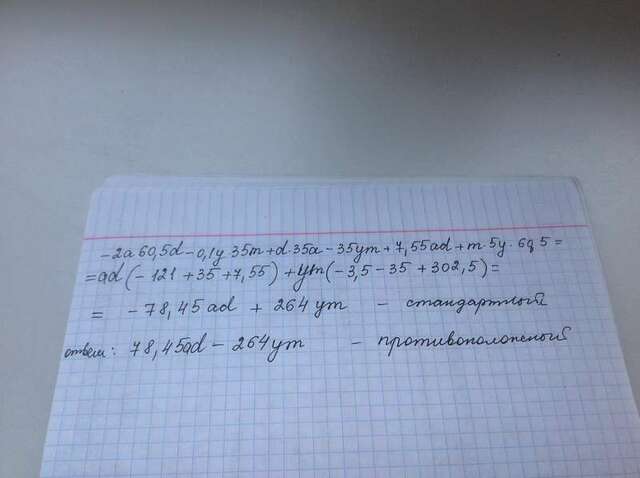 -2a 60,5d - 0,1y 35m + d·35a - 35ym + 7,55ad + m·5y·6q 5 =
= ad (- 121 + 35 + 7,55) + ym (- 3,5 - 35 + 302,5) =
= - 78,45 ad + 264 ym - стандартный
ответ: 78,45ad - 264ym - противоположный